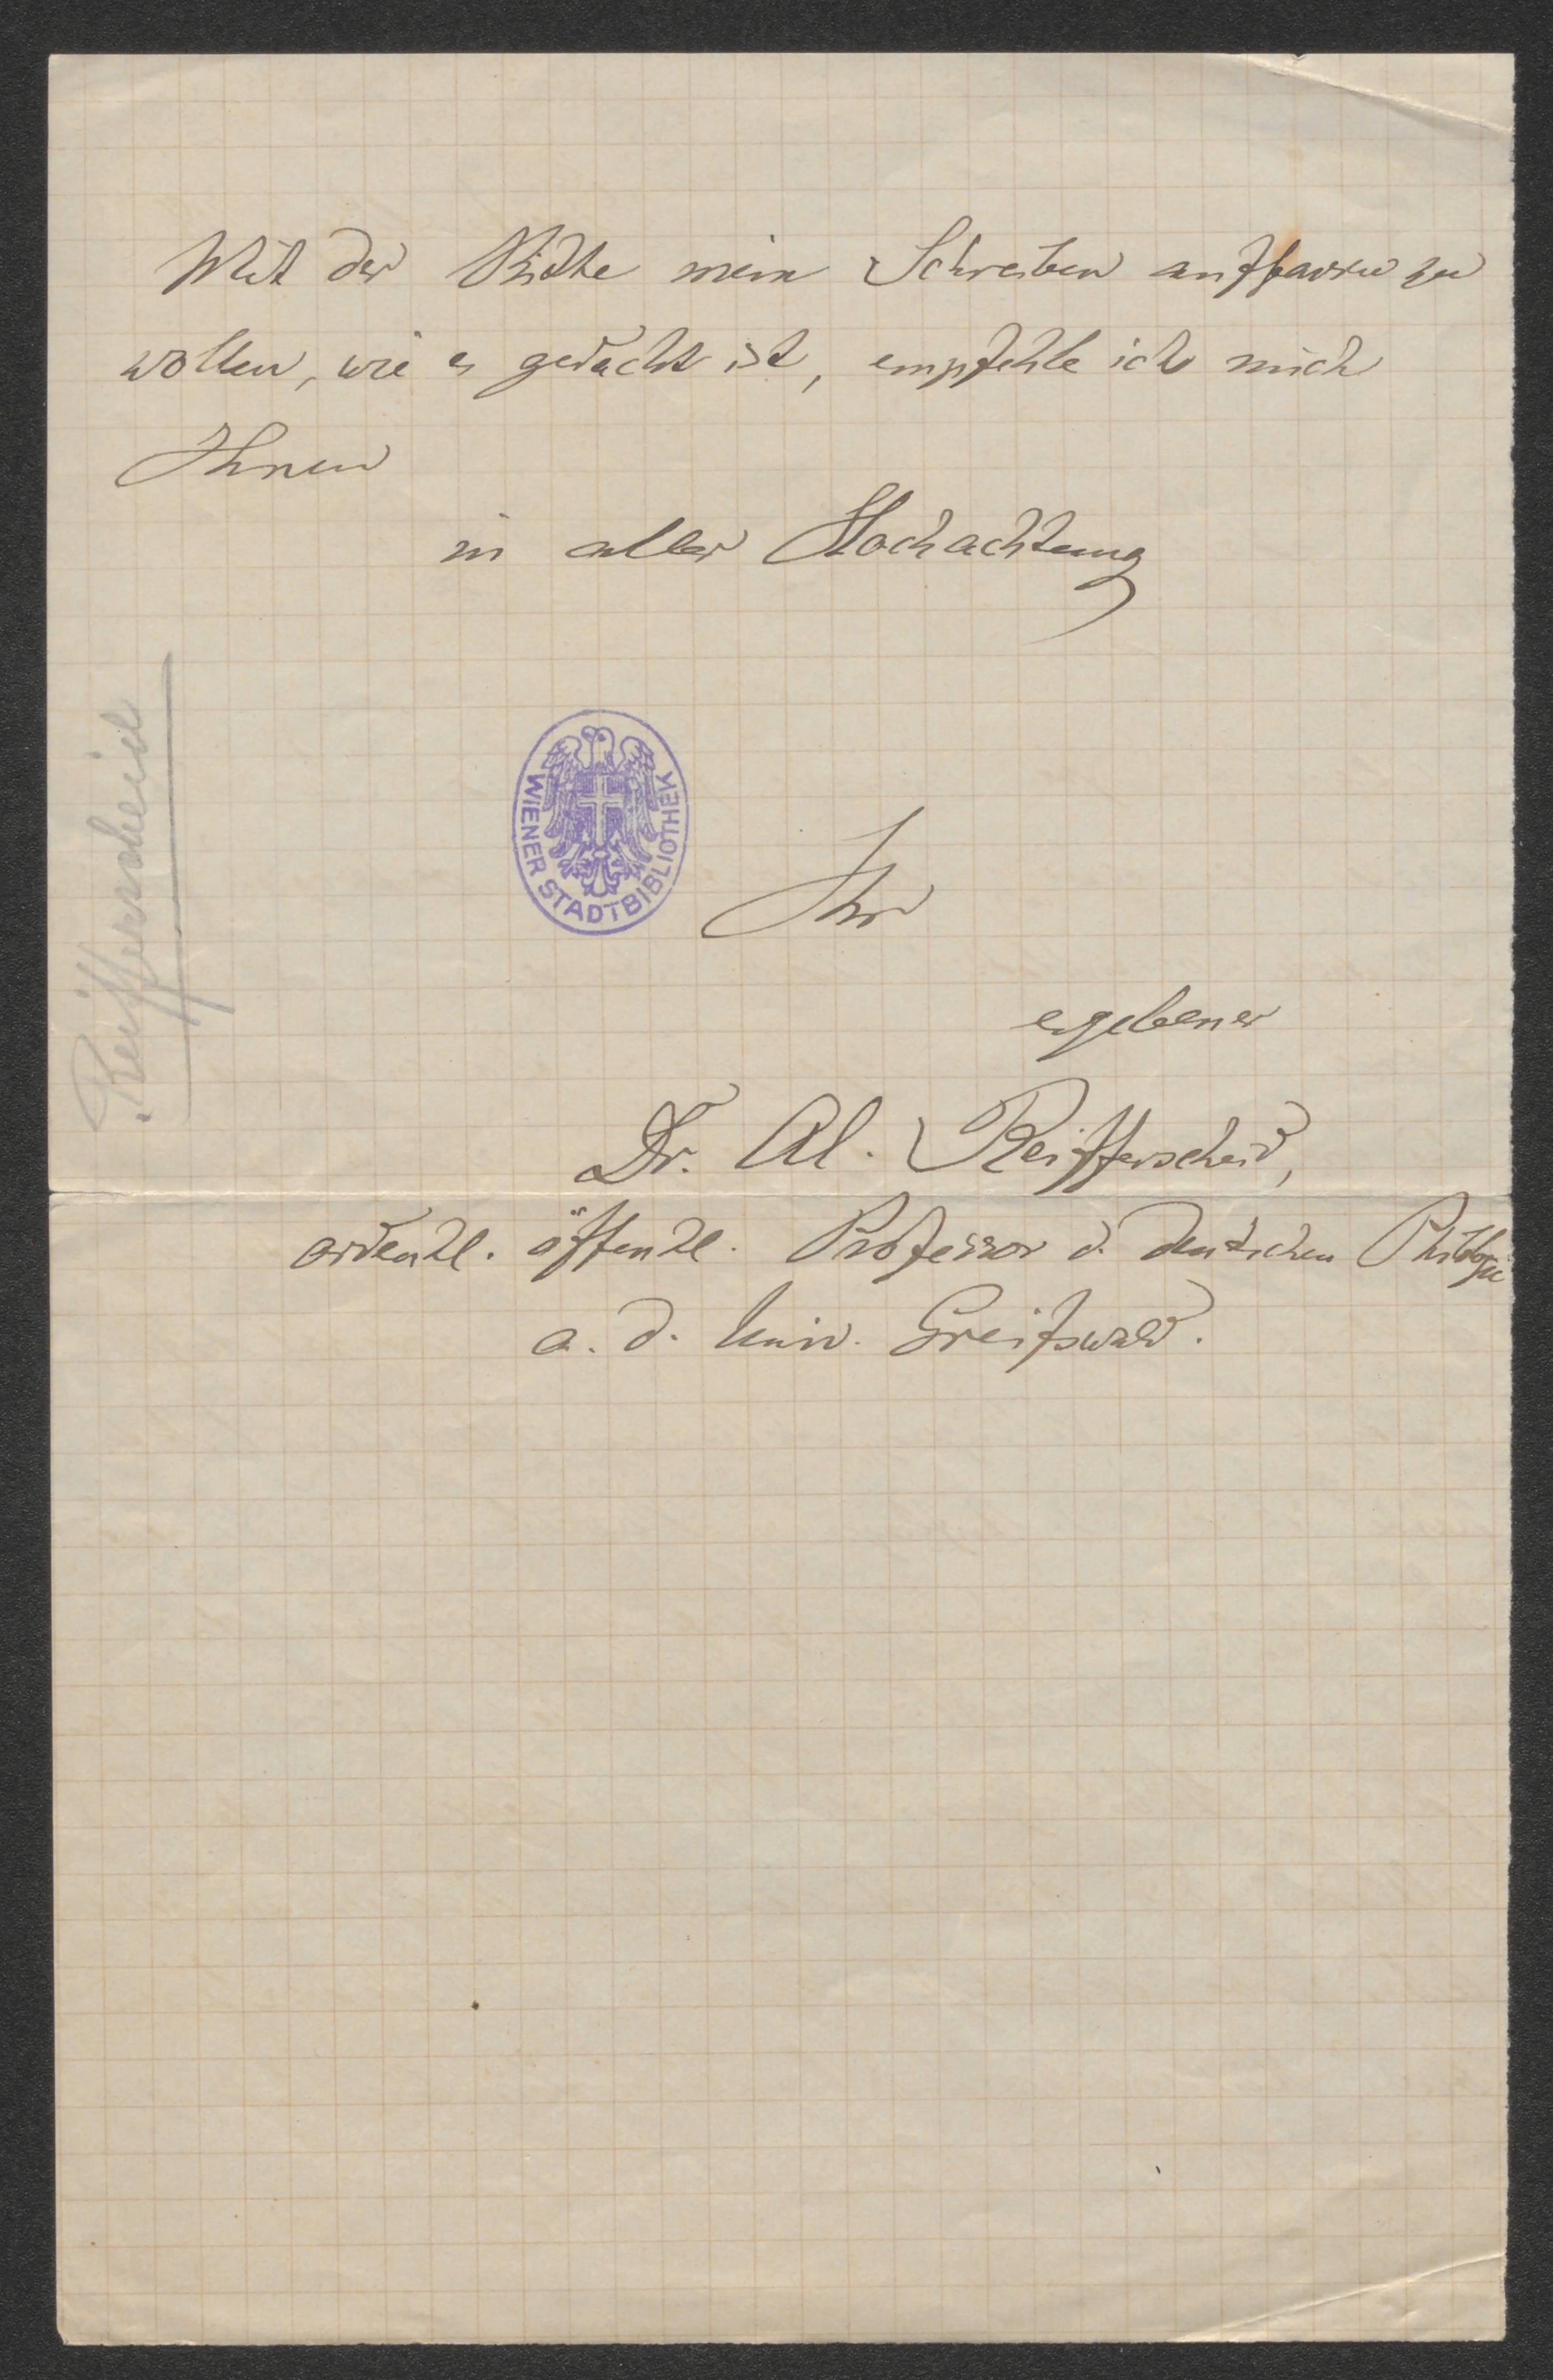 Mit der Bitte mein Schreiben auffassen zu
wollen, wie es gedacht ist, empfehle ich mich
Ihnen
in aller Hochachtung
Reifferscheid
WIENER STADTBIBLIOTHEK
Ihr
ergebener
Dr. Al. Reifferscheid,
ordentl. öffentl. Professor d. deutschen Philologie
a. d. Univ. Greifswald.